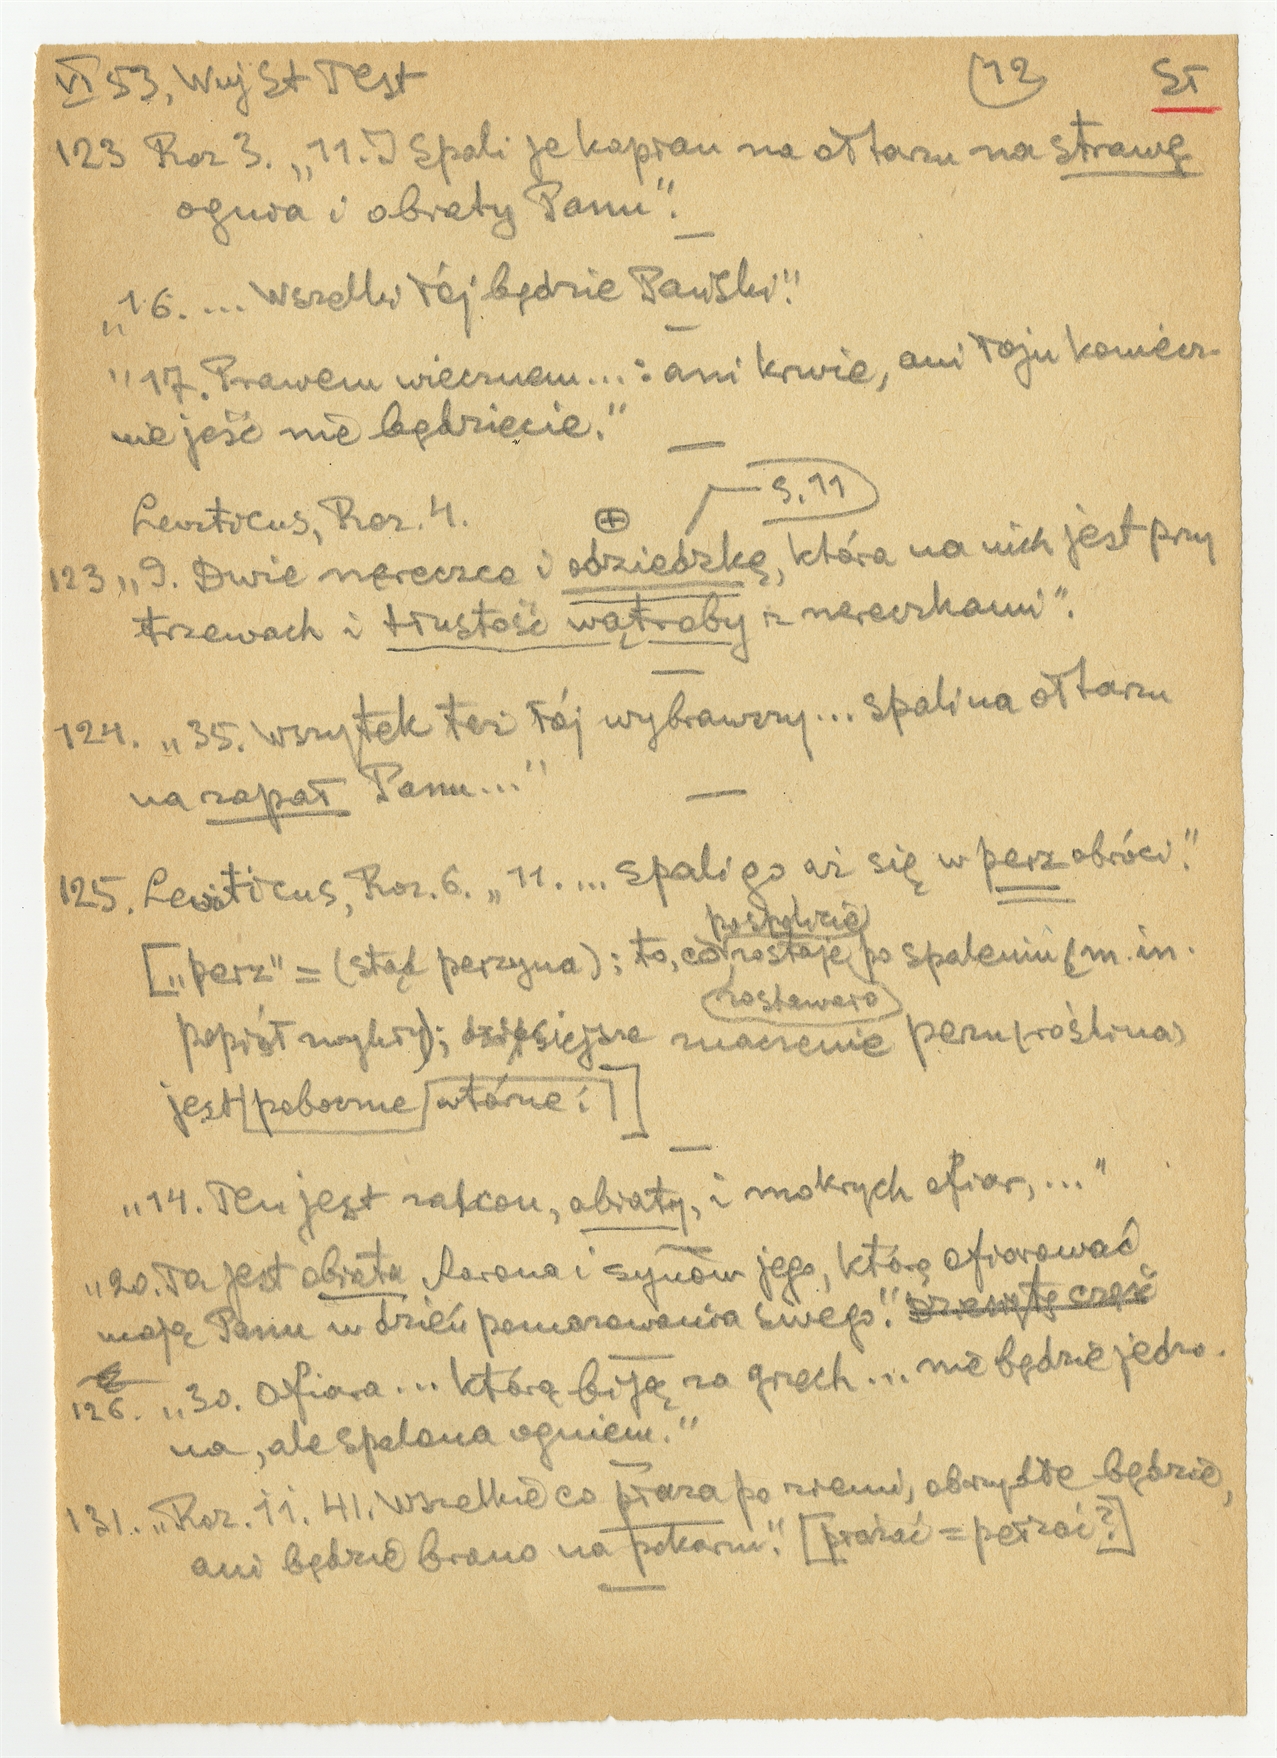 VI 53, Wuj St Test 12 St
123 Roz 3. „11. I spali je kapłan na ołtarzu na strawę
ognia i obiaty Panu".
„16. ... wszelki łój będzie Pański."
"17. Prawem wiecznem...: ani krwie, ani łoju koniecz-
nie jeść nie będziecie."
s. 11
Leviticus, Roz. 4.
123 „9. Dwie nereczce i odziedzkę, która na nich jest przy
trzewach i tłustość wątroby z nereczkami".
124. „35. Wszytek też łój wybrawszy... spali na ołtarzu
na zapał Panu..."
125. Leviticus, Roz. 6. „11. ... spali go aż się w perz obróci."
pospolicie
[„perz" = (stąd perzyna); to, co zostaje po spaleniu (m. in.
popiół zwykły); dzisiejsze znaczenie perzu (roślina)
jest poboczne wtórne: ]
„14. Ten jest zakon, obiaty, i mokrych ofiar, ..."
„20. Ta jest obiata Aarona i synów jego, którą ofiarować
mają Panu w dzień pomazowania swego."
126. „30. Ofiara... którą biją za grzech... nie będzie jedzo-
na, ale spalona ogniem."
131. „Roz. 11. 41. Wszelkie co płaza po ziemi, obrzydłe będzie,
ani będzie brano na pokarm." [płazać = pełzać?]